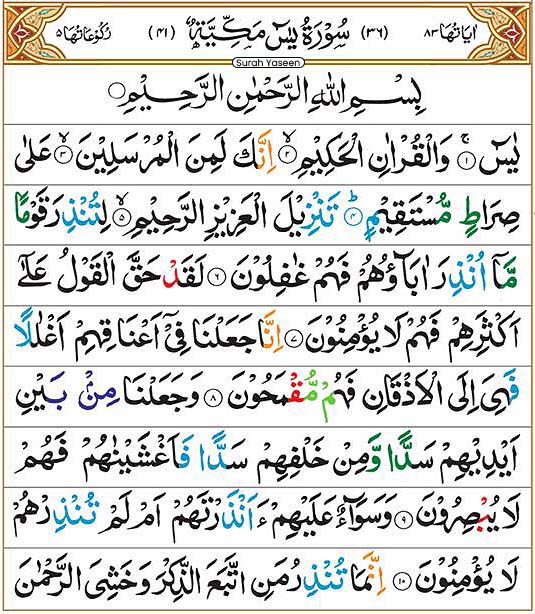 اٰیَاتُهَا ٨٣ (٣٦) سُوْرَةُ يٰسٓ مَكِّيَّةٌ (٤١) رُكُوْعَاتُهَا ٥
Surah Yaseen
بِسْمِ اللّٰهِ الرَّحْمٰنِ الرَّحِيْمِ
يٰسٓ ۚ ١ وَالْقُرْاٰنِ الْحَكِيْمِ ۙ ٢ اِنَّكَ لَمِنَ الْمُرْسَلِيْنَ ۙ ٣ عَلٰى
صِرَاطٍ مُّسْتَقِيْمٍ ؕ ٤ تَنْزِيْلَ الْعَزِيْزِ الرَّحِيْمِ ۙ ٥ لِتُنْذِرَ قَوْمًا
مَّاۤ اُنْذِرَ اٰبَآؤُهُمْ فَهُمْ غٰفِلُوْنَ ٦ لَقَدْ حَقَّ الْقَوْلُ عَلٰٓى
اَكْثَرِهِمْ فَهُمْ لَا يُؤْمِنُوْنَ ٧ اِنَّا جَعَلْنَا فِيْۤ اَعْنَاقِهِمْ اَغْلٰلًا
فَهِيَ اِلَى الْاَذْقَانِ فَهُمْ مُّقْمَحُوْنَ ٨ وَجَعَلْنَا مِنْۢ بَيْنِ
اَيْدِيْهِمْ سَدًّا وَّمِنْ خَلْفِهِمْ سَدًّا فَاَغْشَيْنٰهُمْ فَهُمْ
لَا يُبْصِرُوْنَ ٩ وَسَوَآءٌ عَلَيْهِمْ ءَاَنْذَرْتَهُمْ اَمْ لَمْ تُنْذِرْهُمْ
لَا يُؤْمِنُوْنَ ١٠ اِنَّمَا تُنْذِرُ مَنِ اتَّبَعَ الذِّكْرَ وَخَشِيَ الرَّحْمٰنَ